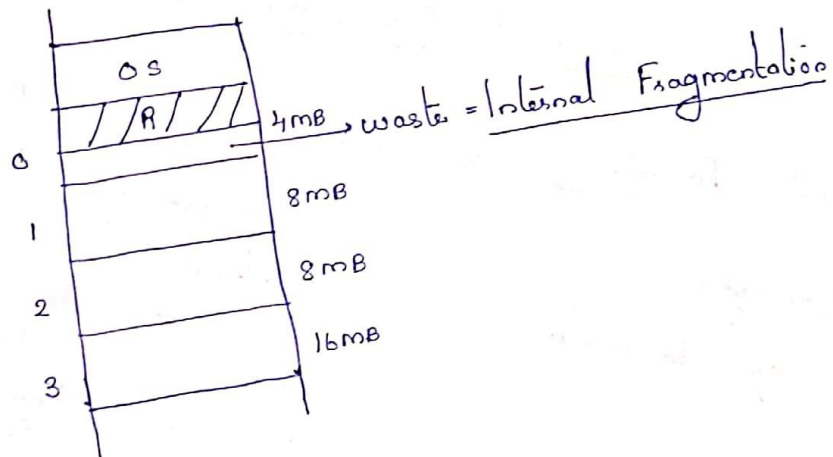 OS
R
4mB
waste = Internal Fragmentation
0
8mB
1
8mB
2
16mB
3